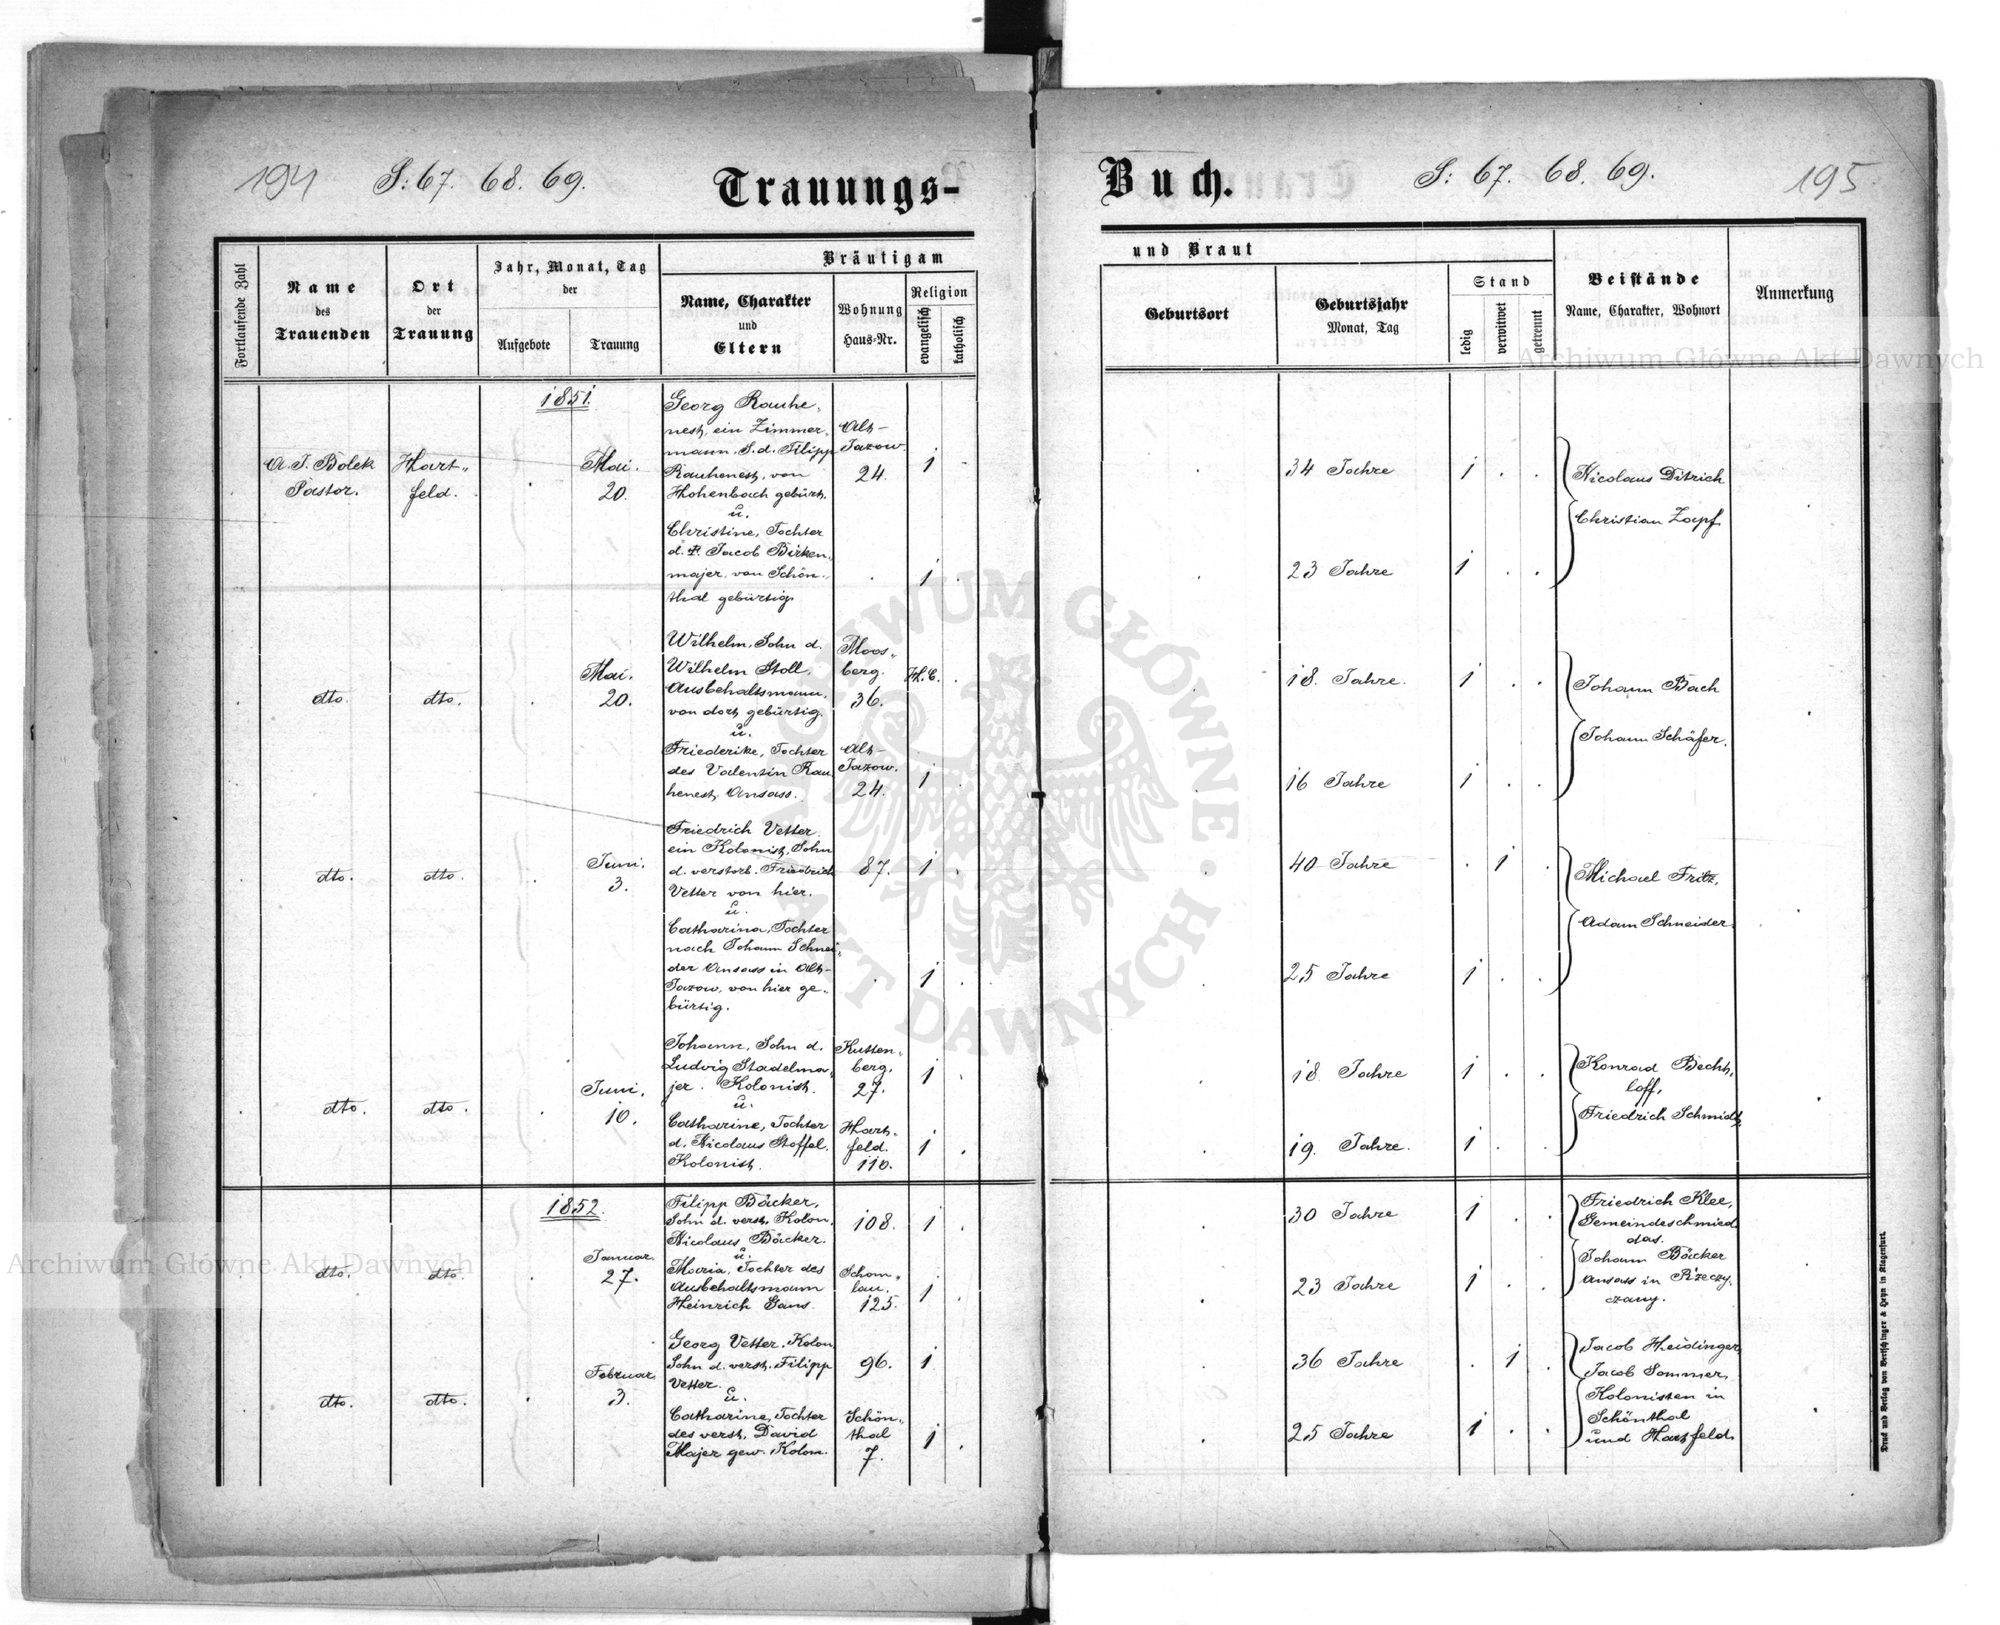 194 S: 67. 68. 69. Trauungs-
Fortlaufende Zahl
Name
des
Trauenden
Ort
der
Trauung
Jahr, Monat, Tag
der
Aufgebote
Trauung
Bräutigam
Name, Charakter
und
Eltern
Wohnung
Haus-Nr.
Religion
evangelisch
katholisch
1851.
A. J. Bolek
Pastor.
Hart-
feld.
Mai.
20.
Georg Rauhe-
nest, ein Zimmer-
mann, S. d. Filipp
Rauhenest, von
Hohenbach gebürt.
u.
Christine, Tochter
d. Jacob Birken-
majer, von Schön-
thal gebürtig.
Alt-
Jazow.
24.
1
1
dto.
dto.
Mai.
20.
Wilhelm, Sohn d.
Wilhelm Stoll,
Ausbehaltsmann,
von dort gebürtig.
u.
Friederike, Tochter
des Valentin Rau-
henest. Ansass.
Moos-
berg.
36.
Alt-
Jazow.
24.
H.C.
1
dto.
dto.
Juni.
3.
Friedrich Vetter.
ein Kolonist, Sohn
d. verstorb. Friedrich
Vetter von hier.
u.
Catharina, Tochter
nach Johann Schnei-
der Ansass in Alt-
Jazow, von hier ge-
bürtig.
87.
1
1
dto.
dto.
Juni.
10.
Johann, Sohn d.
Ludvig Stadelma-
jer. Kolonist.
u.
Catharine, Tochter
d. Nicolaus Stoffel,
Kolonist.
Kutten-
berg.
27.
Hart-
feld.
110.
1
1
1852.
dto.
dto.
Januar.
27.
Filipp Bäcker,
Sohn d. verst. Kolon.
Nicolaus Bäcker.
u.
Maria, Tochter des
Ausbehaltsmann
Heinrich Gans.
108.
Schom-
lau.
125.
1
1
dto.
dto.
Februar.
3.
Georg Vetter, Kolon.
Sohn d. verst. Filipp
Vetter.
u.
Catharine, Tochter
des verst. David
Majer gew. Kolon.
96.
Schön-
thal
7.
1
1
Buch. S: 67. 68. 69. 195
und Braut
Geburtsort
Geburtsjahr
Monat, Tag
Stand
ledig
verwitwet
getrennt
Beistände
Name, Charakter, Wohnort
Anmerkung
34 Jahre 1
23 Jahre 1
Nicolaus Ditrich
Christian Zapf.
18. Jahre. 1
16 Jahre 1
Johann Bach
Johann Schäfer.
40 Jahre 1
25 Jahre 1
Michael Fritz,
Adam Schneider.
18 Jahre 1
19. Jahre. 1
Konrad Becht-
loff,
Friedrich Schmidt,
30 Jahre 1
23 Jahre 1
Friedrich Klee,
Gemeindeschmied
das.
Johann Bäcker
Ansass in Rzeczy-
czany.
36 Jahre 1
25 Jahre 1
Jacob Heidinger,
Jacob Sommer,
Kolonisten in
Schönthal
und Hartfeld.
Druck und Verlag von Bertschinger & Heyn in Klagenfurt.
Archiwum Główne Akt Dawnych
Archiwum Główne Akt Dawnych
ARCHIWUM GŁÓWNE · AKT DAWNYCH